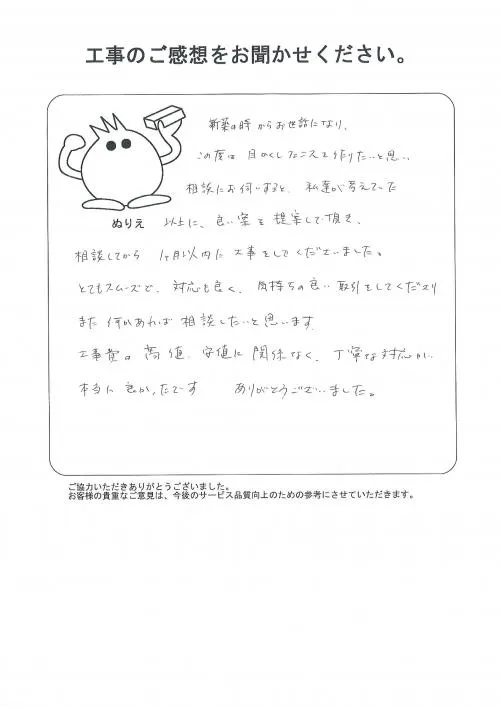 工事のご感想をお聞かせください。
新築の時からお世話になり、
この度は 目かくしフェンスを作りたいと思い
相談にお伺いすると、私達が考えていた
ぬりえ
以上に、良い案を提案して頂き、
相談してから 1ヶ月以内に 工事をしてくださいました。
とてもスムーズで、対応も良く、気持ちの良い 取引をしてくださり
また 何かあれば 相談したいと思います
工事費の 高値、安値に 関係なく、丁寧な対応が、
本当に 良かったです ありがとうございました。
ご協力いただきありがとうございました。
お客様の貴重なご意見は、今後のサービス品質向上のための参考にさせていただきます。